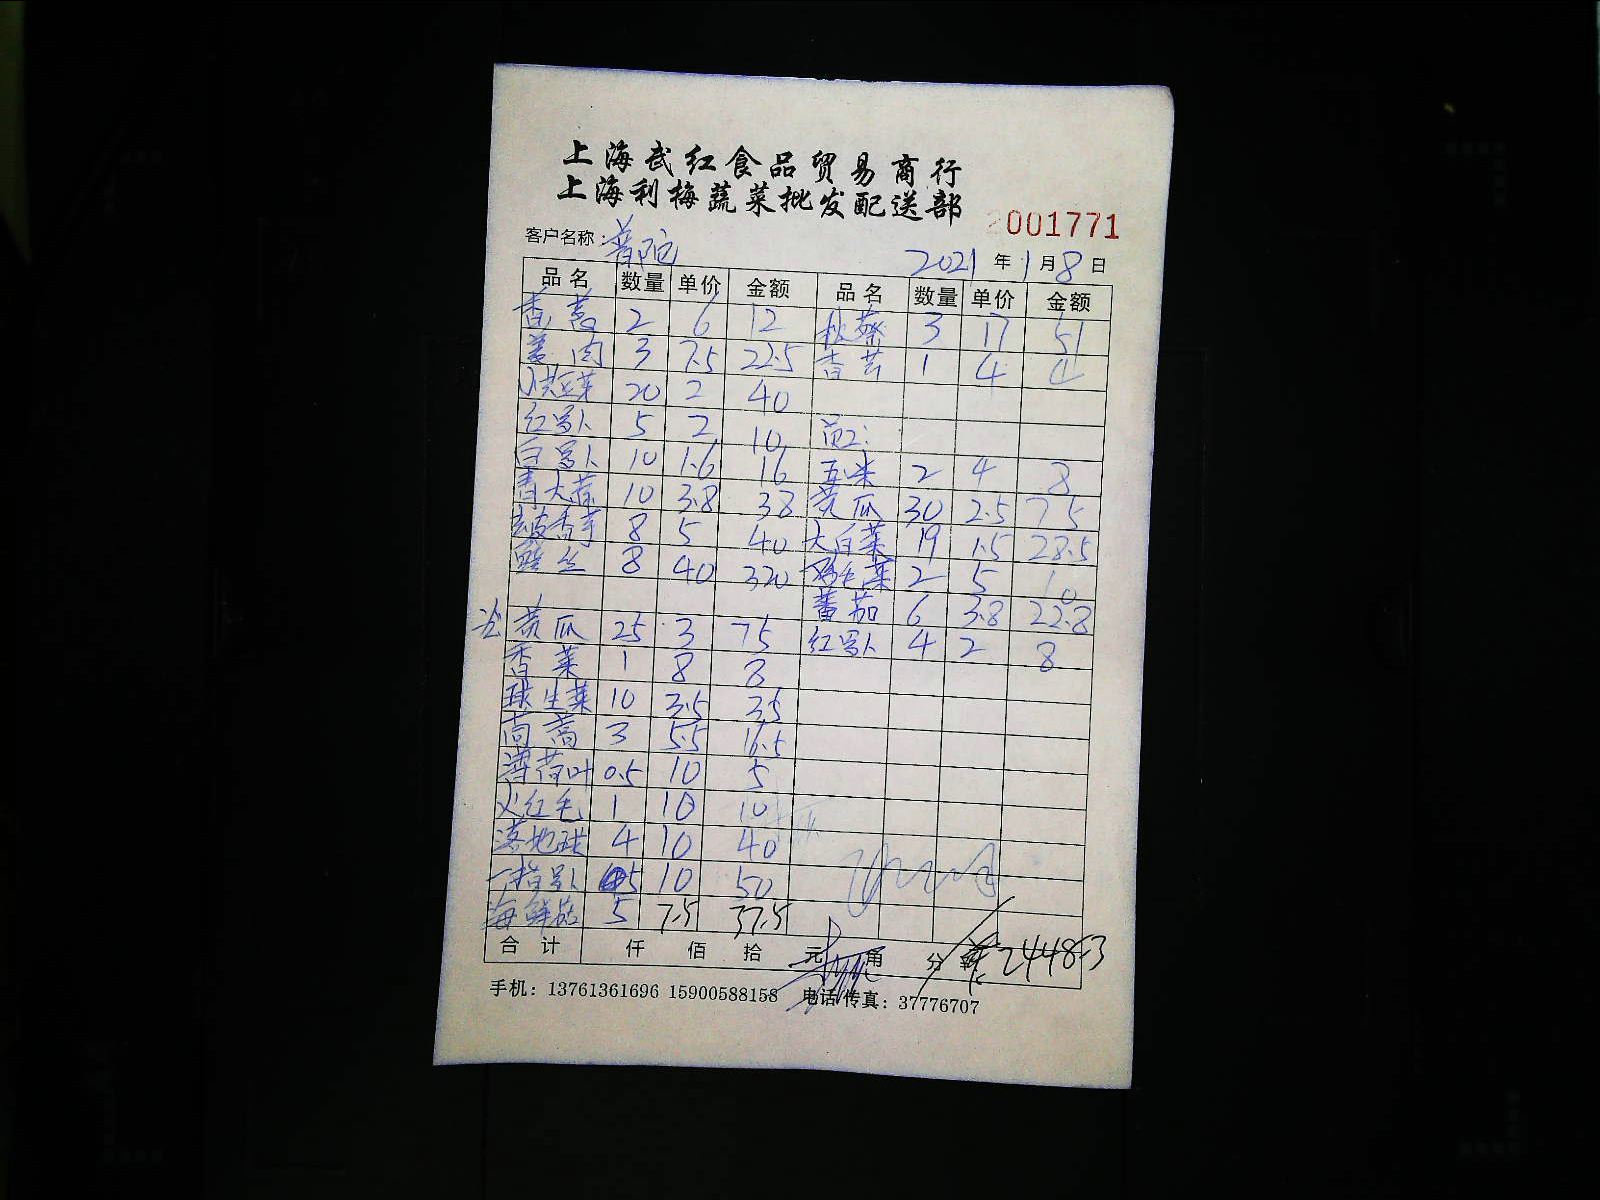 上海武红食品贸易商行
上海利梅蔬菜批发配送部
2001771
客户名称：普陀 2021年1月8日
品名 数量 单价 金额 品名 数量 单价 金额
香葱 2 6 12 秋葵 3 17 51
姜肉 3 7.5 22.5 香芸 1 4 4
20 2 40
红罗卜 5 2 10 员工:
白罗卜 10 1.6 16 玉米 2 4 8
青大蒜 10 3.8 38 黄瓜 30 2.5 75
香芋 8 5 40 大白菜 19 1.5 28.5
丝 8 40 320 鸡毛菜 2 5 10
番茄 6 3.8 22.8
黄瓜 25 3 75 红罗卜 4 2 8
香菜 1 8 8
球生菜 10 3.5 35
茼蒿 3 5.5 16.5
薄荷叶 0.5 10 5
火红毛 1 10 10
落地球 4 10 40
手指罗卜 5 10 50
海鲜菇 5 7.5 37.5
合计 仟 佰 拾 元 角 分 2448.3
手机：13761361696 15900588158 电话/传真：37776707